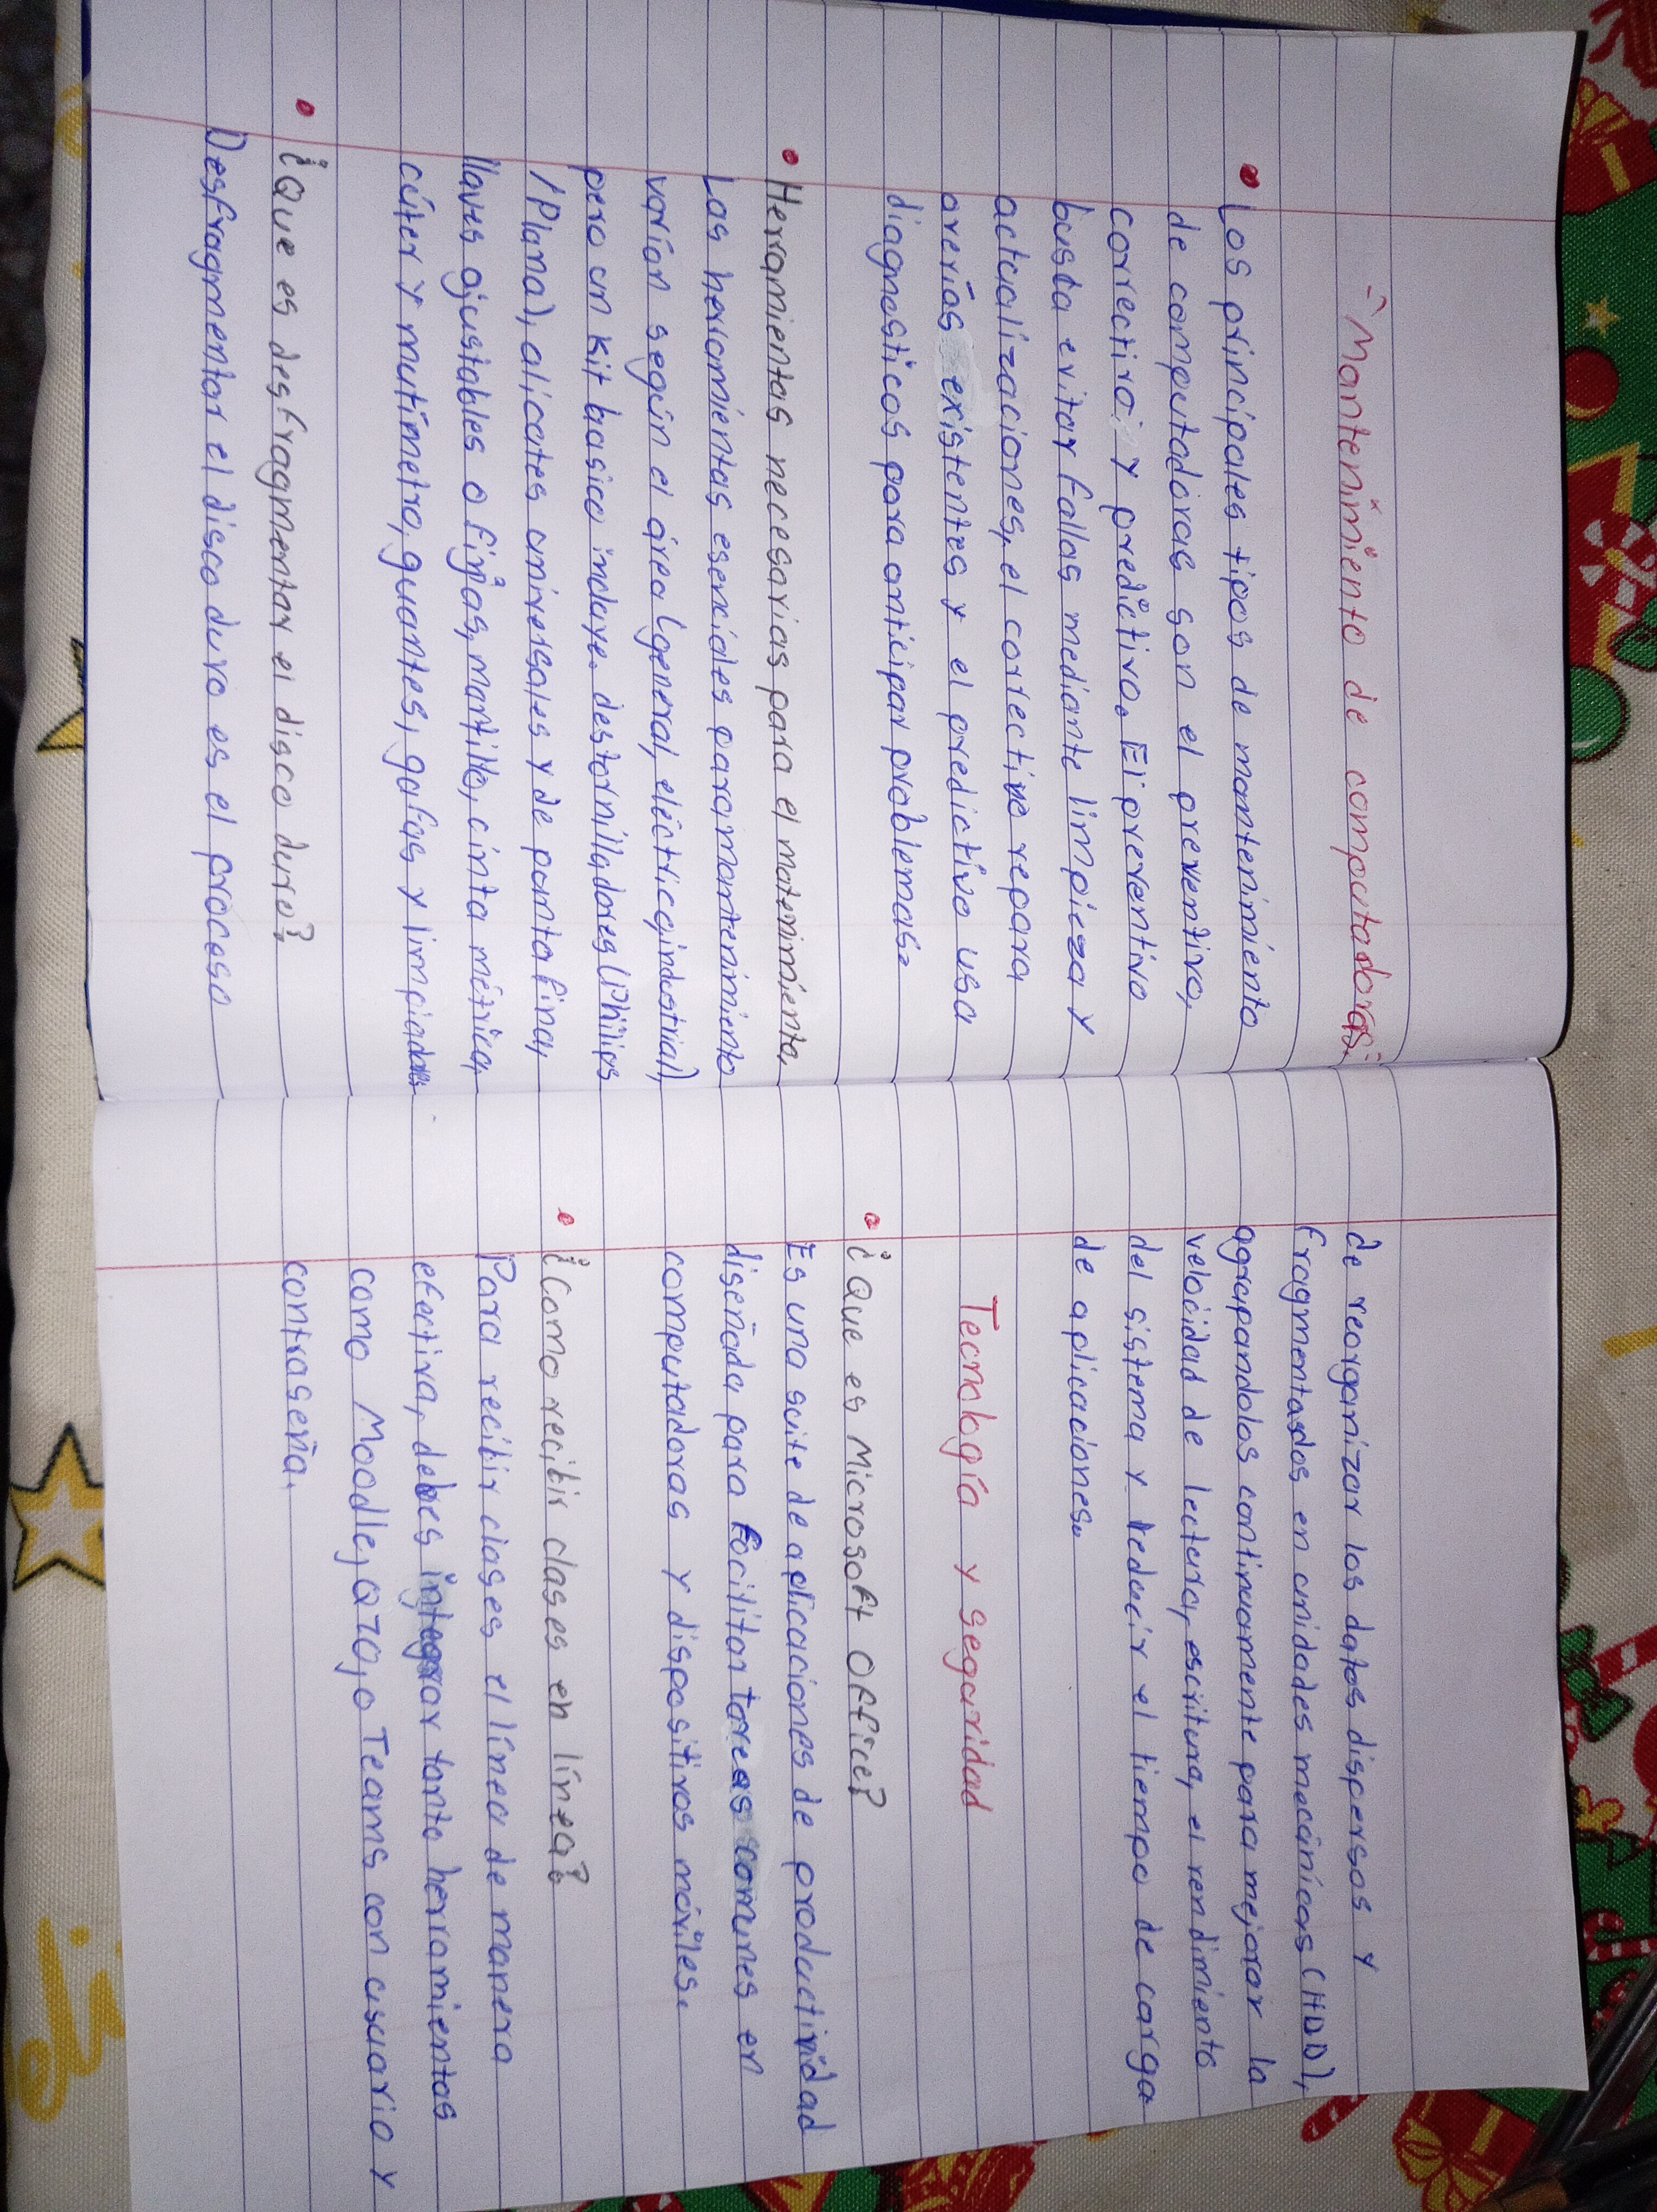 "Mantenimiento de computadoras"
• Los principales tipos de mantenimiento
de computadoras son el preventivo,
correctivo y predictivo. El preventivo
busca evitar fallas mediante limpieza y
actualizaciones, el correctivo repara
averías existentes y el predictivo usa
diagnosticos para anticipar problemas.
• Herramientas necesarias para el matenimiento,
Las herramientas esenciales para mantenimiento
varían según el área (general, eléctrica, industrial),
pero un kit basico incluye. destornilladores (Philips
/Plana), alicates universales y de punta fina,
llaves ajustables o fijas, martillo, cinta métrica,
cúter y mutímetro, guantes, gafas y limpiadores
• ¿Que es desfragmentar el disco duro?
Desfragmentar el disco duro es el proceso
de reorganizar los datos dispersos y
fragmentados en unidades mecánicas (HDD),
agrupandolos continuamente para mejorar la
velocidad de lectura, escritura, el rendimiento
del sistema y reducir el tiempo de carga
de aplicaciones.
Tecnología y seguridad
• ¿Que es Microsoft Office?
Es una suite de aplicaciones de productividad
diseñada para facilitar tareas comunes en
computadoras y dispositivos móviles.
• ¿Como recibir clases en línea?
Para recibir clases el línea de manera
efectiva, debes integrar tanto herramientas
como Moodle, Q10, o Teams con usuario y
contraseña.